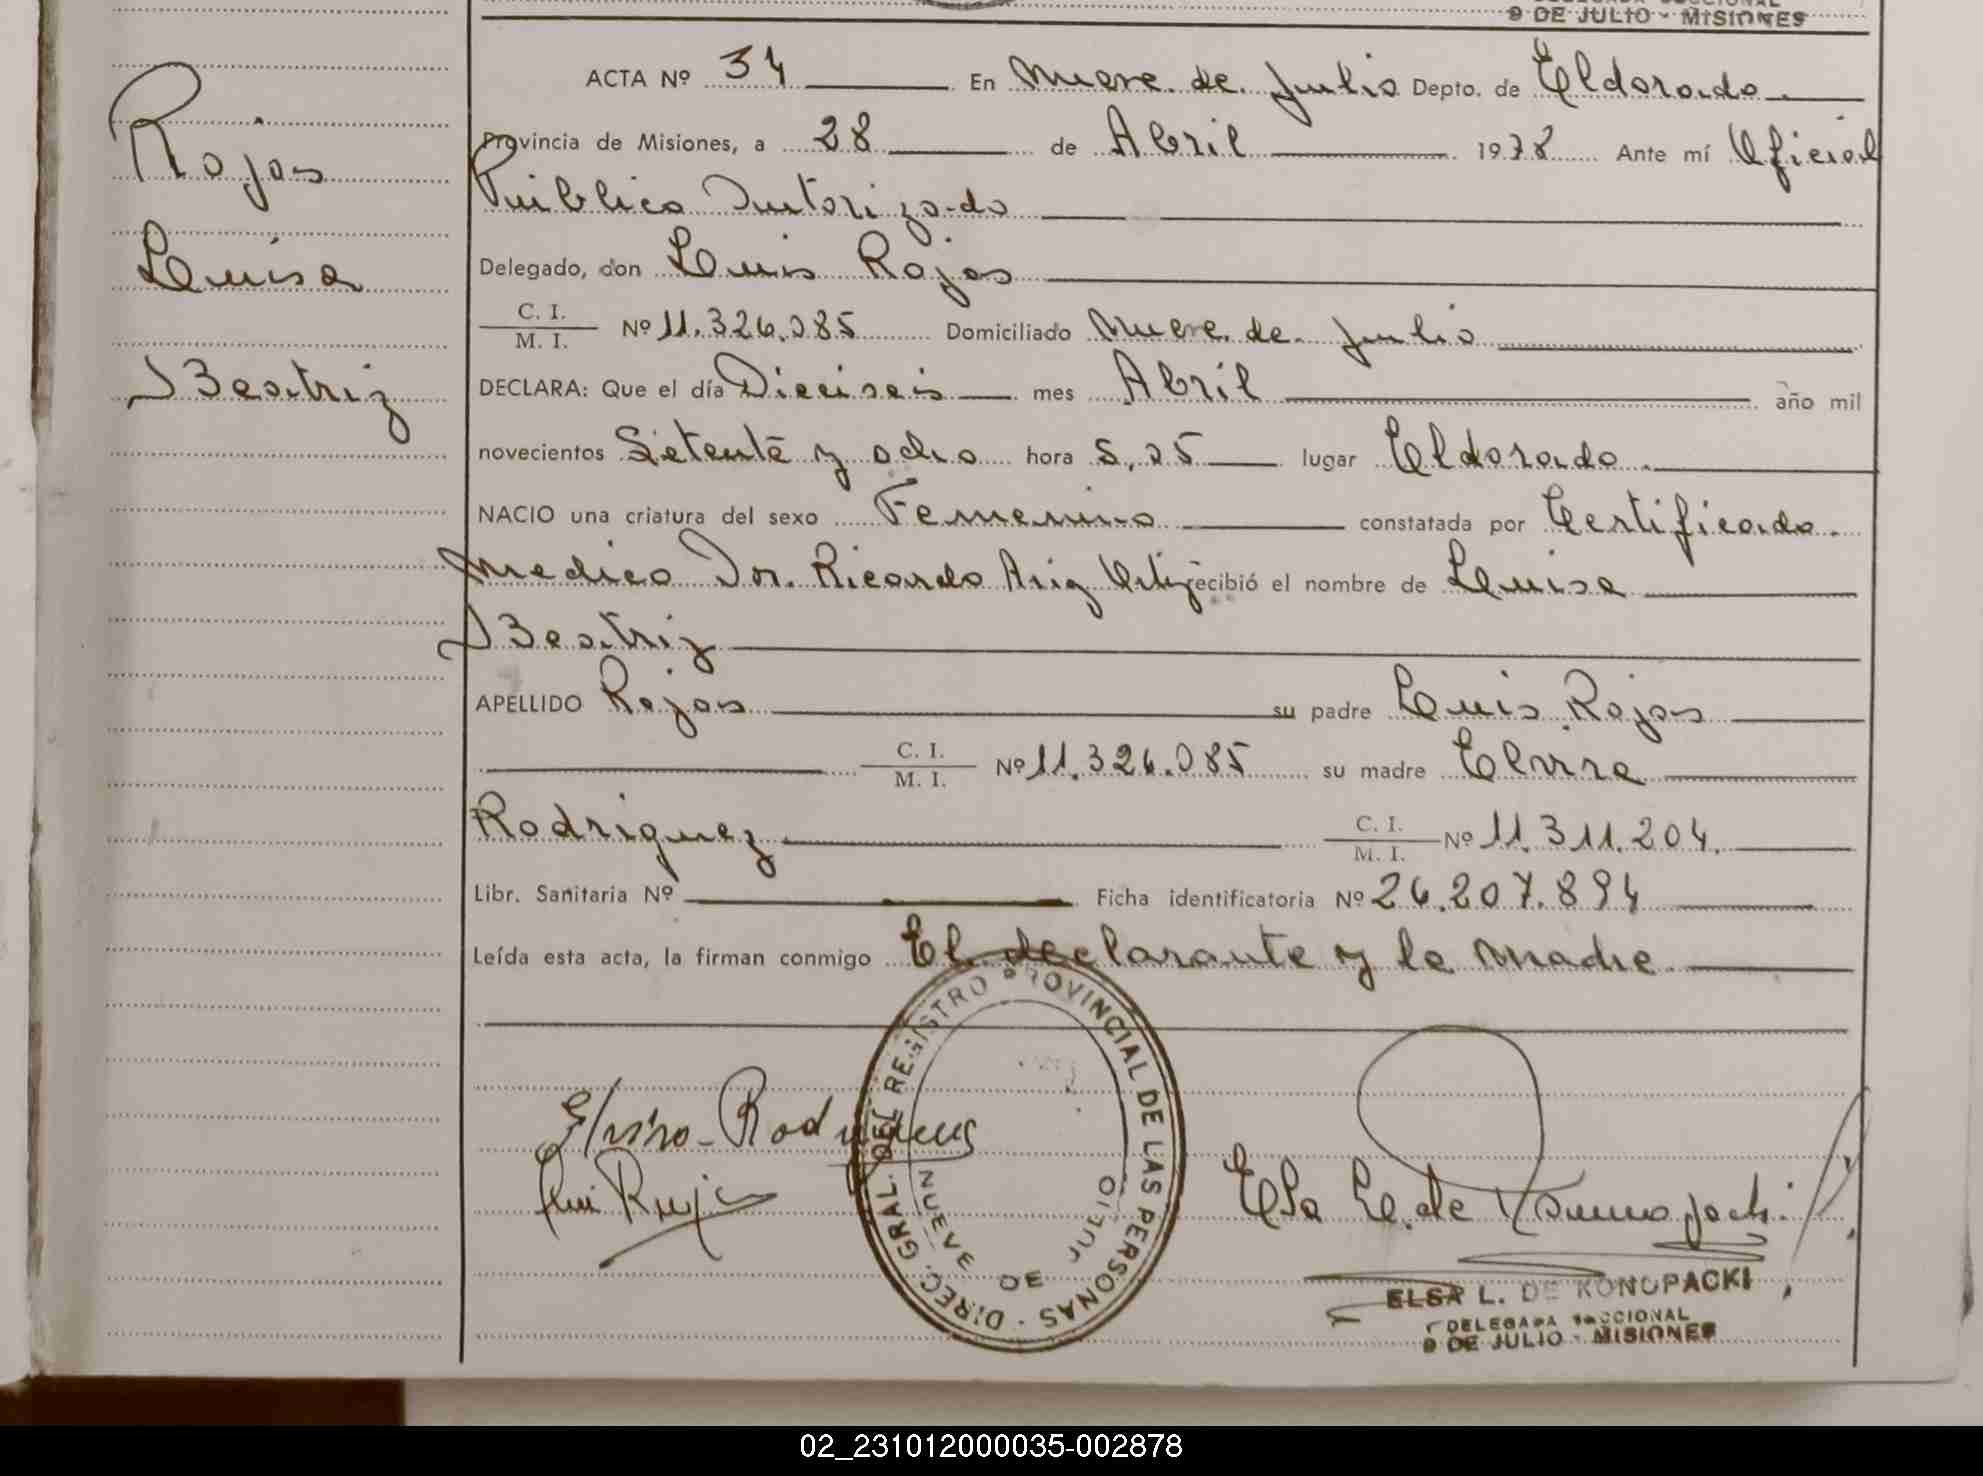 9 DE JULIO - MISIONES
ACTA Nº 34 En Nueve de Julio Depto. de Eldorado
Provincia de Misiones, a 28 de Abril 1978 Ante mí Oficial
Público Autorizado
Delegado, don Luis Rojas
C. I.
M. I. Nº 11.326.085 Domiciliado Nueve de Julio
DECLARA: Que el día Dieciseis mes Abril año mil
novecientos Setenta y ocho hora 5,05 lugar Eldorado
NACIO una criatura del sexo Femenino constatada por Certificado
Medico Dr. Ricardo recibió el nombre de Luisa
Beatriz
APELLIDO Rojas su padre Luis Rojas
C. I.
M. I. Nº 11.326.085 su madre Elvira
Rodriguez C. I.
M. I. Nº 11.311.204.
Libr. Sanitaria Nº Ficha identificatoria Nº 26.207.894
Leída esta acta, la firman conmigo El declarante y la madre
Rojas
Luisa
Beatriz
Elvira Rodriguez
Luis Rojas
DIREC. GRAL. DEL REGISTRO PROVINCIAL DE LAS PERSONAS
NUEVE DE JULIO
Elsa L. de Konopacki
ELSA L. DE KONOPACKI
DELEGADA SECCIONAL
9 DE JULIO - MISIONES
02_231012000035-002878